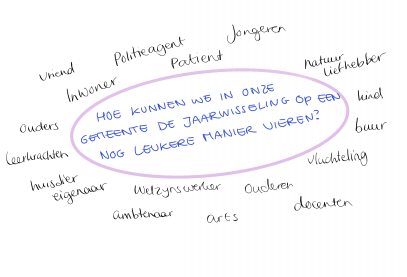 Jongeren
Politieagent
Patient
natuur
liefhebber
vriend
Inwoner
kind
HOE KUNNEN WE IN ONZE
GEMEENTE DE JAARWISSELING OP EEN
NOG LEUKERE MANIER VIEREN?
ouders
buur
leerkrachten
vluchteling
huisdier
eigenaar
Welzijnswerker
Ouderen
docenten
ambtenaar
arts